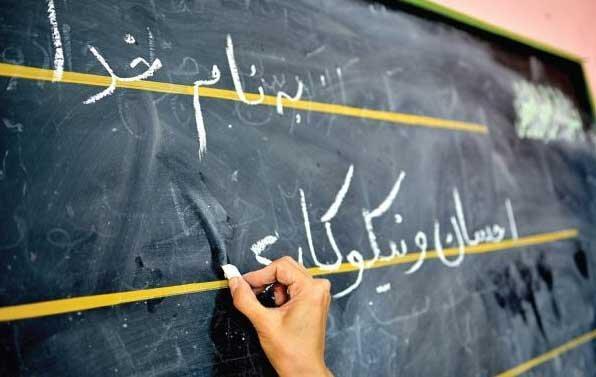 به نام خدا
احسان و نیکوکاری